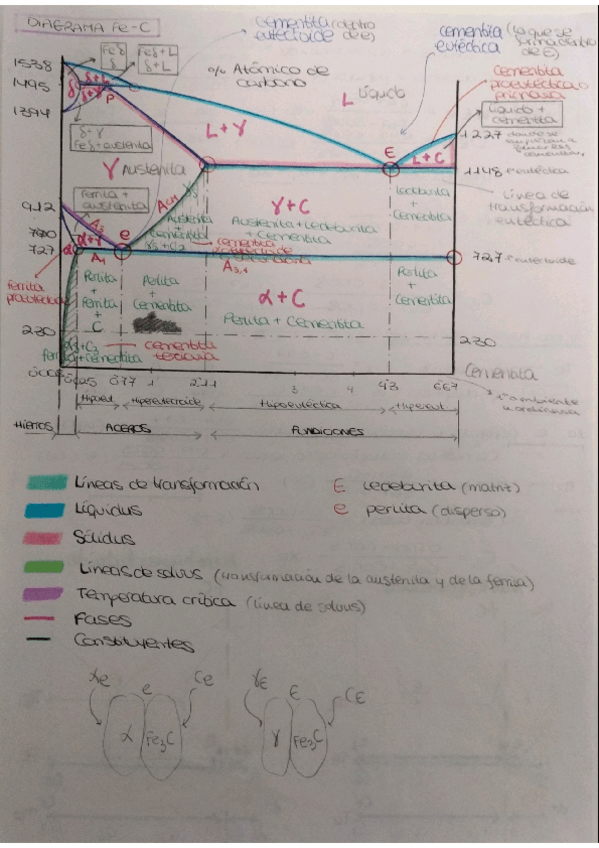 DIAGRAMA Fe-C
cementita (dentro
eutectoide de e)
cementita (la que se
eutéctica forma dentro
de E)
Feδ
δ
Feδ+L
δ+L
1538
1495
1394
δ+L
δ
δ+γ
P
% Atómico de
carbono
L Líquido
cementita
proeutéctica o
primaria
Líquido +
cementita
1227
L+γ
E
L+C
1148
δ+γ
Feδ+austenita
γ Austenita
Ledeburita
+
Cementita
Línea de
transformación
eutéctica
912
Ferrita +
austenita
Acm
γ+C
Austenita+Ledeburita
+ Cementita
Austenita
+
Cementita
A3
α+γ
e
727
α
A1
A3,1
727 Tª eutectoide
ferrita
proeutectoide
Perlita
+
Ferrita
+
C
Perlita
+
Cementita
α+C
Perlita + Cementita
Perlita
+
Cementita
230
230
cementita
terciaria
0'025
0'77
1
2'11
3
4
4'3
6'67
Cementita
Tª ambiente
Hipoeut
Hipereutectoide
Hipoeutéctica
Hipereut
HIERROS
ACEROS
FUNDICIONES
Líneas de transformación
E ledeburita (matriz)
Líquidus
e perlita (disperso)
Sólidus
Líneas de solvus (transformación de la austenita y de la ferrita)
Temperatura crítica (línea de solvus)
Fases
Constituyentes
αe
e
Ce
γE
E
CE
α
Fe3C
γ
Fe3C